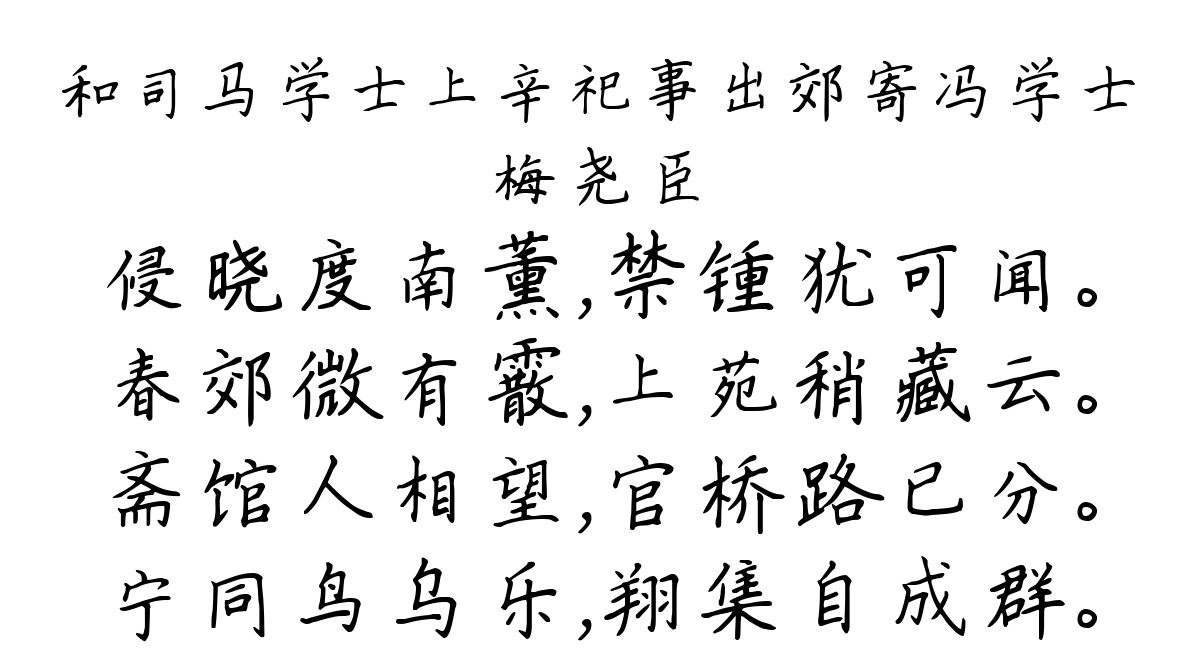 和司马学士上辛祀事出郊寄冯学士
梅尧臣
侵晓度南薰,禁锺犹可闻。
春郊微有霰,上苑稍藏云。
斋馆人相望,官桥路已分。
宁同鸟乌乐,翔集自成群。